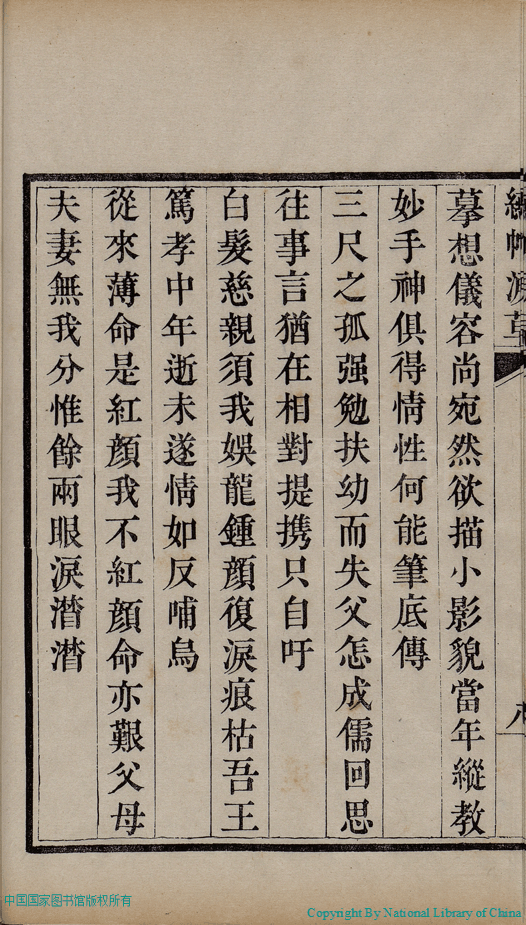 摹想儀容尚宛然欲描小影貌當年縱教
妙手神俱得情性何能筆底傳
三尺之孤强勉扶幼而失父怎成儒回思
往事言猶在相對提携只自吁
白髮慈親須我娛龍鍾顏復淚痕枯吾王
篤孝中年逝未遂情如反哺烏
從來薄命是紅顏我不紅顏命亦艱父母
夫妻無我分惟餘兩眼淚潸潸
中国国家图书馆版权所有
Copyright By National Library of China